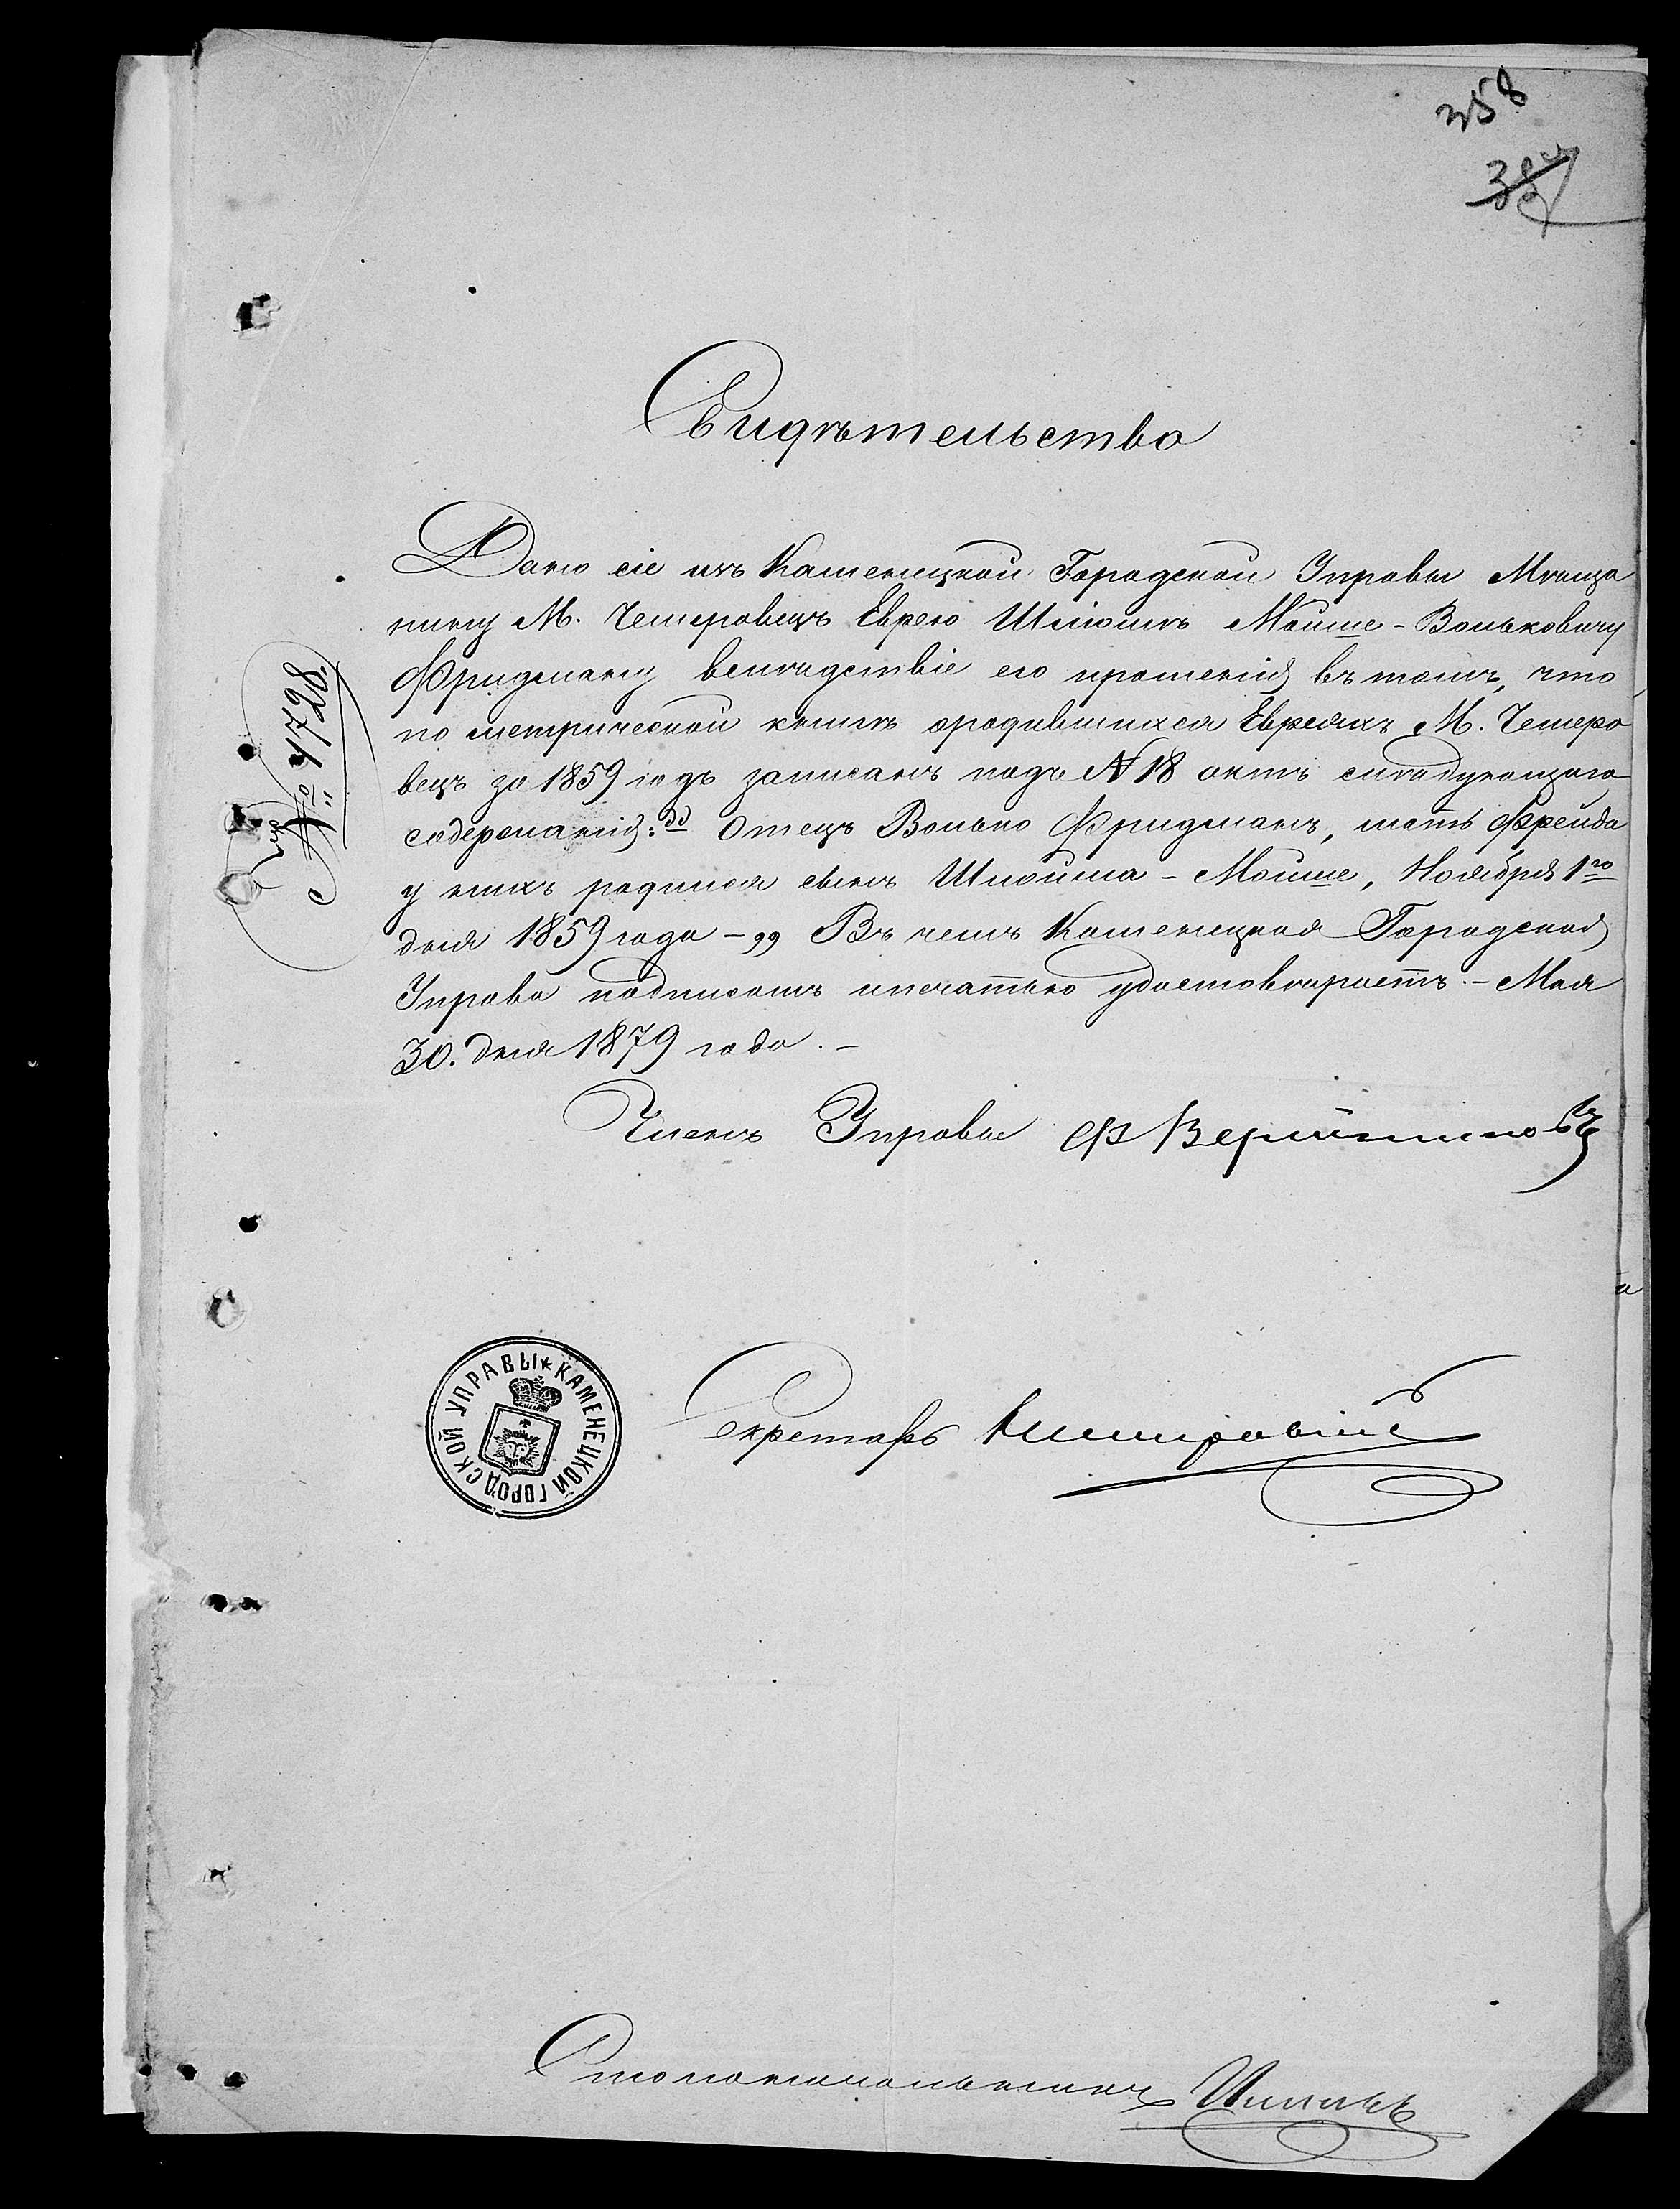 358
384
Свидѣтельство
Дано сіе изъ Каменецкой Городской Управы Мѣща
нину М. Чемеровецъ Еврею Шлiомѣ Мойше-Вольковичу
Фридману вслѣдствіе его прошенія въ томъ, что
по метрической книгѣ ородившихся Евреяхъ М. Чемеро
вецъ за 1859 годъ записанъ подъ N 18 актъ слѣдующаго
содержанія: „ Отецъ Волько Фридманъ, мать Фрейда
у нихъ родился сынъ Шлойма - Мойше, Ноября 1го
дня 1859 года - „ Въ чемъ Каменецкая Городская
Управа подписомъ ипечатью удостовѣряетъ. - Мая
30. дня 1879 года. -
Членъ Управы Ф
№ 1728
КАМЕНЕЦКОЙ ГОРОДСКОЙ УПРАВЫ
Секретарь
Столоначальникъ